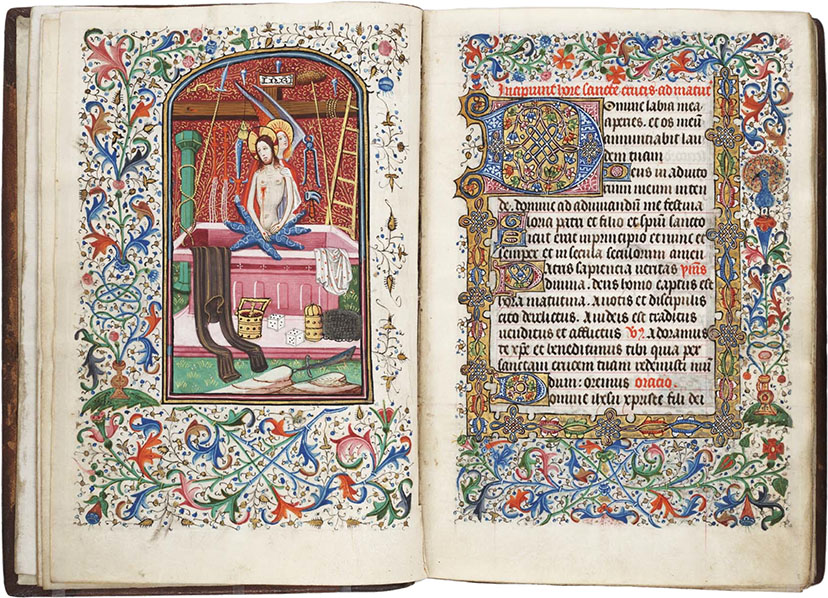 INRI
Incipiunt hore sancte crucis ad matut
Domine labia mea
aperies. et os meu
nunciabit lau
dem tuam
Deus in adiuto
rium meum in ten
de. Domine ad adiuvandu me festina
Gloria patri et filio et spiritu sancto
Sicut erat in principio et nunc et
semper et in secula seculorum amen
Patris sapiencia veritas ymus
divina. deus homo captus est
hora matutina. A notis et discipulis
cito derelictus. A iudeis est traditus
venditus et afflictus V. Adoramus
te xpe et benedicimus tibi quia per
sanctam crucem tuam redemisti mun
dum: oremus oracio.
Domine ihesu xpriste fili dei